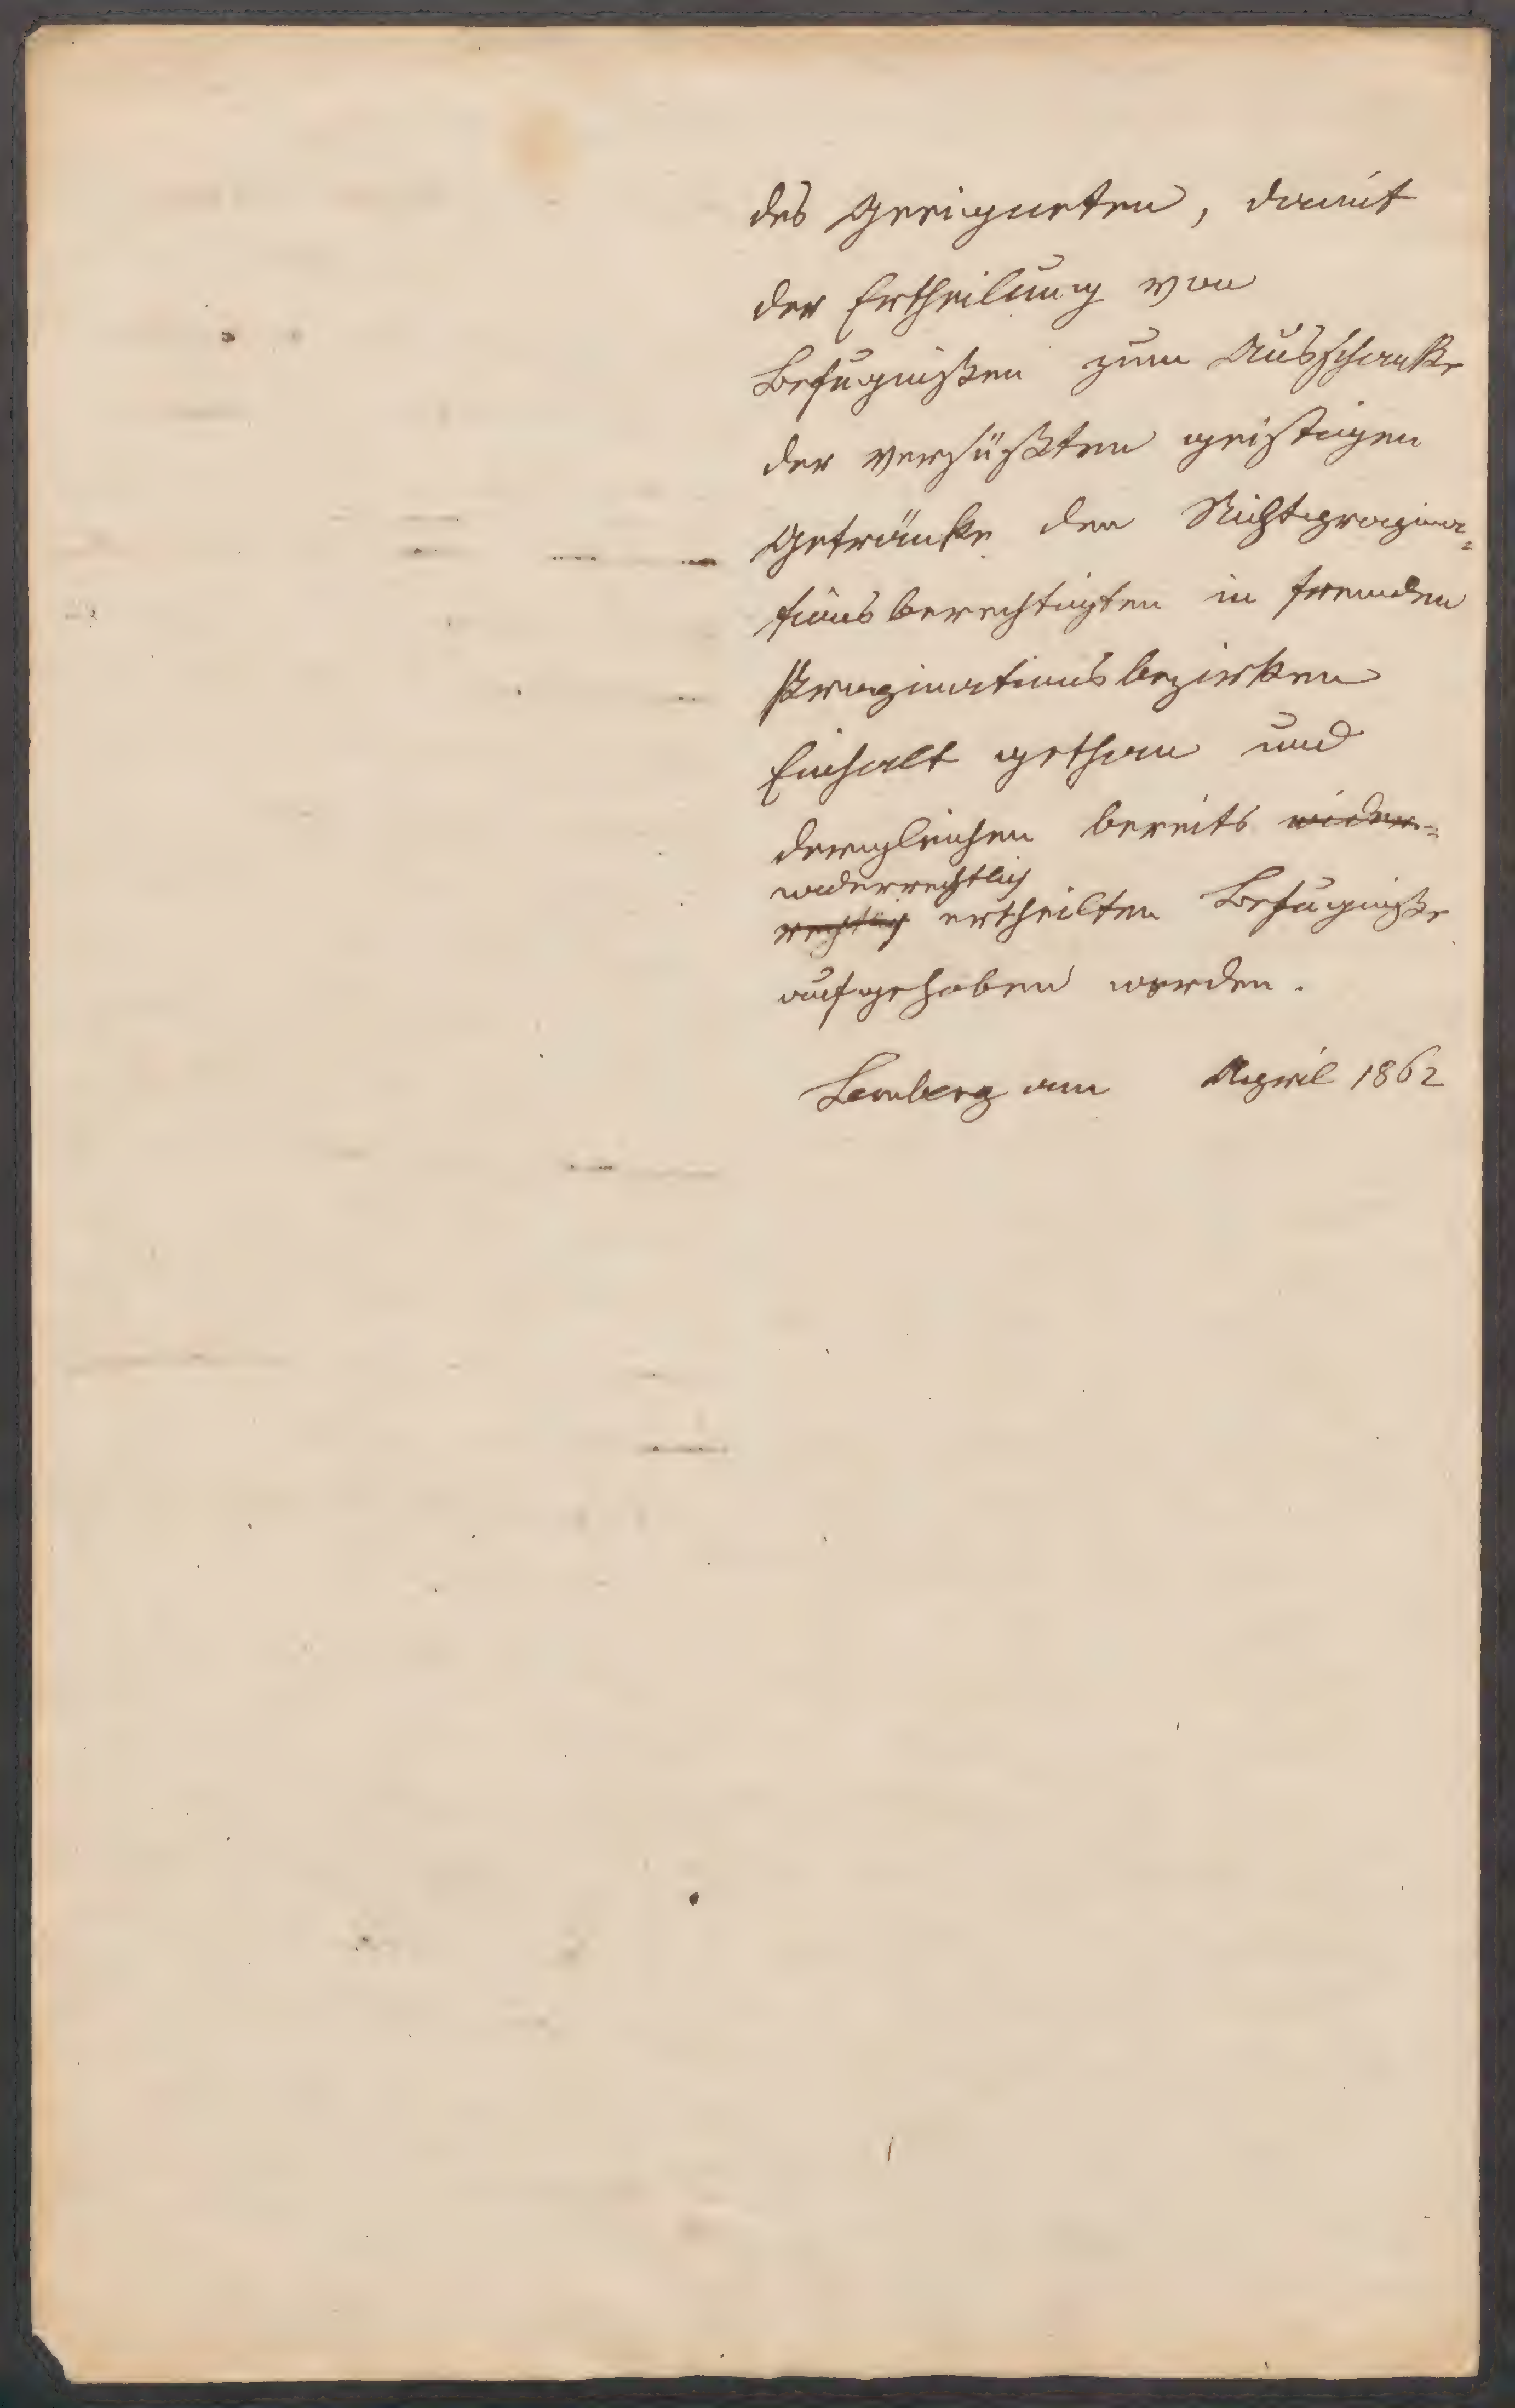 des Geeigneten, damit
der Ertheilung von
Befugnißen zum Ausschanke
der versüßten geistigen
Getränke den Nichtpropina=
tionsberechtigten in fremden
Propinationsbezirken
Einhalt gethan und
dergleichen bereits wider=
widerrechtlich
rechtlich ertheilten Befugniße
aufgehoben werden.
Lemberg am April 1862